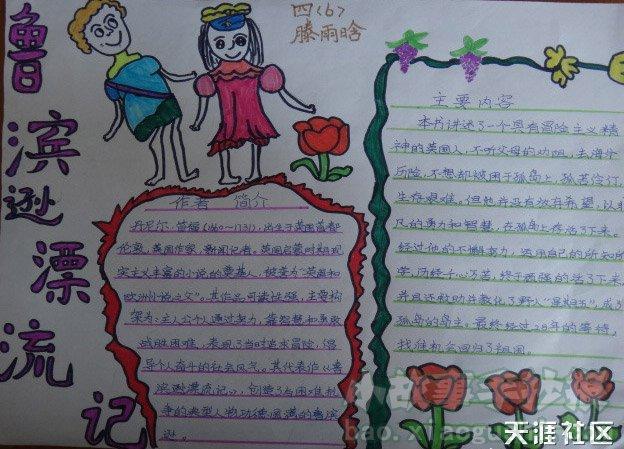 鲁滨逊漂流记
四(6)
滕雨晗
作者 简介
丹尼尔·笛福(1660~1731),出生于英国首都
伦敦,英国作家,新闻记者。英国启蒙时期现
实主义丰富的小说的奠基人,被誉为“英国和
欧洲小说之父”。其作品可读性强,主要构
架为:主人公个人通过努力,靠智慧和勇敢
战胜困难,表现了当时追求冒险,倡
导个人奋斗的社会风气。其代表作《鲁
滨逊漂流记》,创造了与困难抗
争的典型人物
逊。
主要内容
本书讲述了一个具有冒险主义精
神的英国人,不听父母的劝阻,去海外
历险,不想却被困于孤岛上,孤苦伶仃,
生存艰难。但他并没有放弃希望,以非
凡的勇气和智慧,在孤岛上存活了下来。
经过他的不懈努力,运用自己的所知所
学,历经千 苦,终于顽强的活了下来,
并且还救助并教化了野人“星期五”,成了
孤岛的岛主。最终经过28年的等待,
找准机会回归了祖国。
小故事手抄报
天涯社区